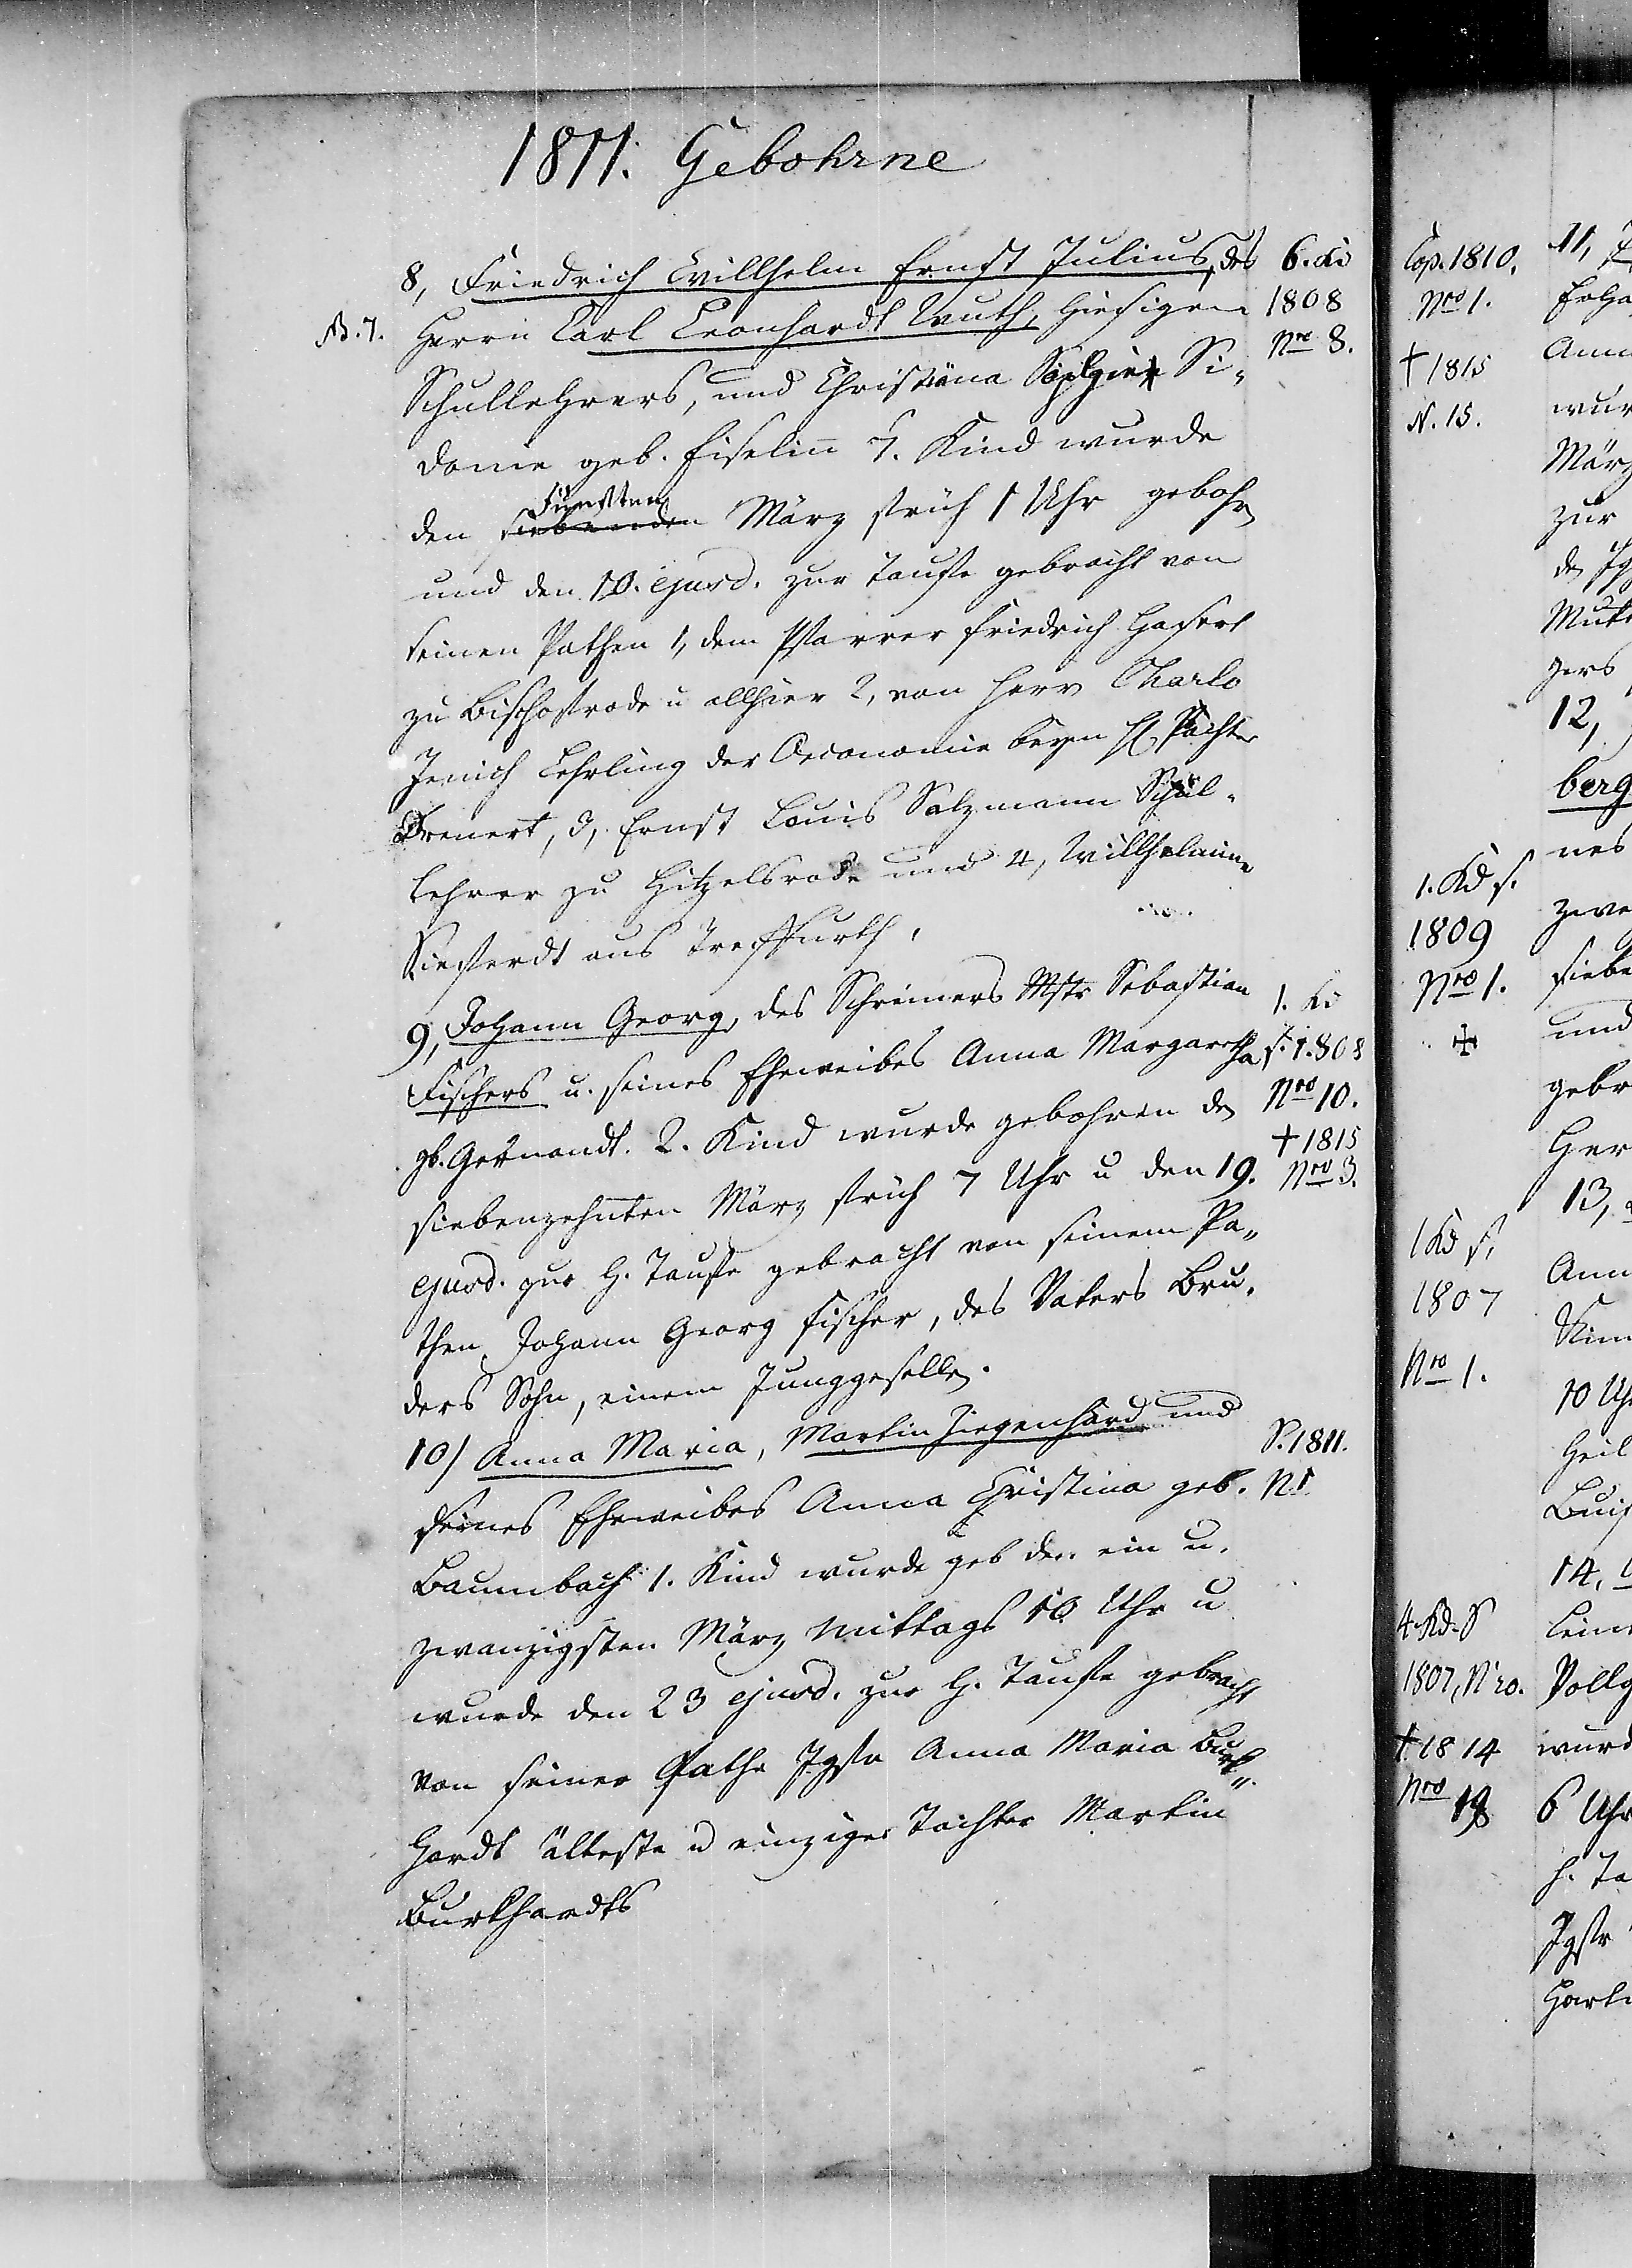 1811. Gebohrne
8, Friedrich Willhelm Ernst Julius, des
Herrn Carl Leonhardt Wuth, hiesigen
Schullehrers, und Christiana Sophie Si-
donie geb. Eiselin 7. Kind wurde
den siebenden Fünften März früh 1 Uhr gebohrn
und den 10. ejusd. zur Taufe gebracht von
seinen Pathen 1, dem Pfarrer Friedrich Hasert
zu Bischofrode u allhier 2, von Herrn Charlo
Jenich Lehrling der Oeconomie beym H. Pachter
Trenert, 3, Ernst Louis Salzmann Schul-
lehrer zu Hitzelsrode und 4, Willhelmine
Siefardt aus Treffurth,
9, Johann Georg, des Schreiners Mstr Sebastian
Fischers u. seines Eheweibes Anna Margaretha
gb. Gernandt. 2. Kind wurde gebohren den
siebenzehnten März früh 7 Uhr u den 19.
ejusd. zur H. Taufe gebracht von seinem Pa-
then Johann Georg Fischer, des Vaters Bru-
ders Sohn, einem Junggesellen.
10) Anna Maria, Martin Ziegenhard und
seines Eheweibes Anna Christina geb.
Baumbach 1. Kind wurde geb den ein u.
zwanzigsten März Mittags 10 Uhr u
wurde den 23 ejusd. zur H. Taufe gebracht
von seiner Pathe Jgfr Anna Maria Burk-
hardt älteste u einziger Tochter Martin
Burkhardts
N. 7.
6. Kd
1808
Nro 8.
1. Kd
s. 1808
Nro 10.
† 1815
Nro 3.
S. 1811.
N 1
Cop. 1810.
Nro 1.
† 1815
N. 15.
1. Kd s.
1809
Nro 1.
✠
1 Kd s.
1807
Nro 1.
4 Kd. S
1807, N 20.
† 1814
Nro 18
11,
Anna
wur
März
zur
12,
berg
nes
zwe
siebe
und
gebr
Her
13,
Ann
10 Uhr
Heil
14,
wurd
6 Uhr
h. Ta
Jgfr